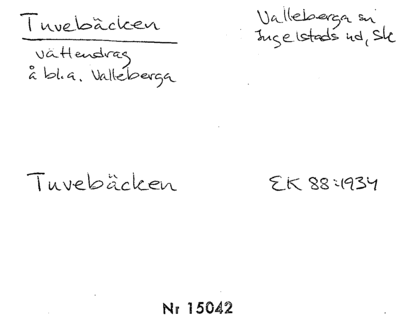 Tuvebäcken
vattendrag
å bl.a. Valleberga
Valleberga sn
Ingelstads hd, Sk
Tuvebäcken
EK 88:1934
Nr 15042